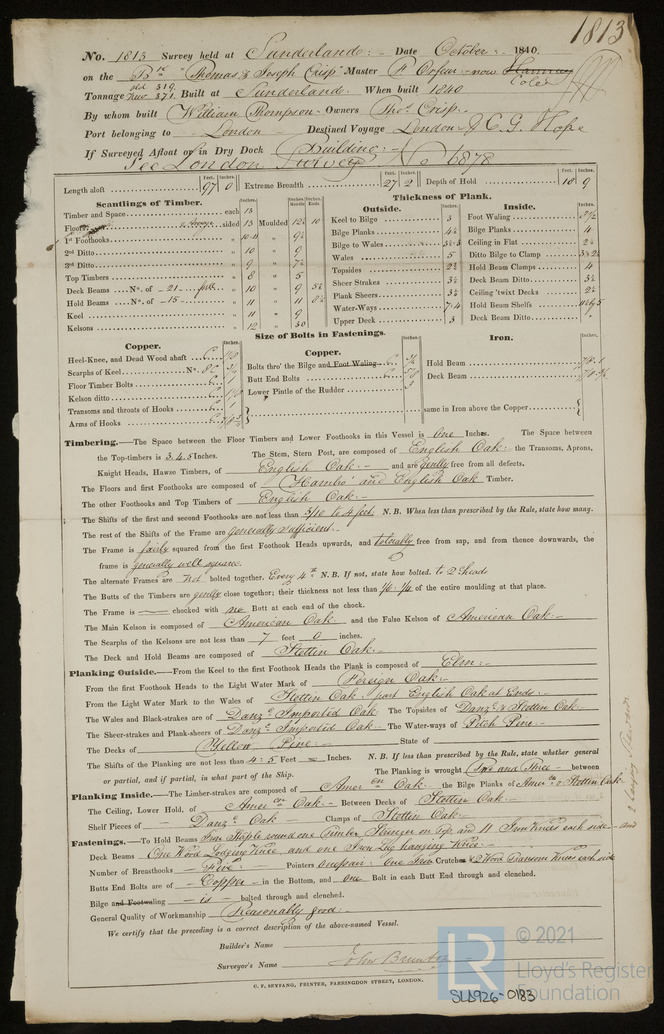 1813
No. 1813 Survey held at Sunderland Date October 1840.
on the Bk "Thomas & Joseph Crisp" Master R Orfeur now
Coles
Tonnage old 319 new 371 Built at Sunderland When built 1840
By whom built William Thompson Owners Thos. Crisp
Port belonging to London Destined Voyage London & C. G. Hope
If Surveyed Afloat or in Dry Dock Building
See London Survey No 6878
Length aloft Feet. 97 Inches. 0 Extreme Breadth Feet. 27 Inches. 2 Depth of Hold Feet. 18 Inches. 9
Scantlings of Timber.
Timber and Space each 13
Floors sided 13 Moulded 12½ 10
1st Foothooks 10.11 " 9½
2nd Ditto 10 " 9
3rd Ditto 9 " 7½
Top Timbers 8 " 5
Deck Beams No. of 21 10 " 9 5½
Hold Beams No. of 15 11 " 11 8½
Keel 11 " 9
Kelsons 12 " 30
Thickness of Plank.
Outside.
Keel to Bilge 3
Bilge Planks 4½
Bilge to Wales
Wales 5
Topsides 2½
Sheer Strakes 3½
Plank Sheers 3½
Water-Ways 7.4
Upper Deck 3
Inside.
Foot Waling 2½
Bilge Planks 4
Ceiling in Flat 2½
Ditto Bilge to Clamp
Hold Beam Clamps 4
Deck Beam Ditto 3½
Ceiling 'twixt Decks 2½
Hold Beam Shelfs
Deck Beam Ditto
Size of Bolts in Fastenings.
Copper.
Heel-Knee, and Dead Wood abaft
Scarphs of Keel No. 8
Floor Timber Bolts 1
Kelson ditto
Transoms and throats of Hooks 1
Arms of Hooks
Copper.
Bolts thro' the Bilge and Foot Waling
Butt End Bolts
Lower Pintle of the Rudder 3
Iron.
Hold Beam
Deck Beam
same in Iron above the Copper
Timbering.—The Space between the Floor Timbers and Lower Foothooks in this Vessel is One Inches. The Space between
the Top-timbers is 3.4.5 Inches. The Stem, Stern Post, are composed of English Oak the Transoms, Aprons,
Knight Heads, Hawse Timbers, of English Oak and are gently free from all defects.
The Floors and first Foothooks are composed of "Hambro' and English Oak Timber.
The other Foothooks and Top Timbers of English Oak
The Shifts of the first and second Foothooks are not less than 3/10 to 4 feet N. B. When less than prescribed by the Rule, state how many.
The rest of the Shifts of the Frame are generally sufficient
The Frame is fairly squared from the first Foothook Heads upwards, and tolerably free from sap, and from thence downwards, the
frame is generally well square.
The alternate Frames are not bolted together. Every 4th N. B. If not, state how bolted. to 2 heads
The Butts of the Timbers are gently close together; their thickness not less than of the entire moulding at that place.
The Frame is — chocked with no Butt at each end of the chock.
The Main Kelson is composed of American Oak and the False Kelson of American Oak
The Scarphs of the Kelsons are not less than 7 feet 0 inches.
The Deck and Hold Beams are composed of Stettin Oak
Planking Outside.—From the Keel to the first Foothook Heads the Plank is composed of Elm
From the first Foothook Heads to the Light Water Mark of Foreign Oak
From the Light Water Mark to the Wales of Stettin Oak, part English Oak at Ends
The Wales and Black-strakes are of Danzc Imported Oak The Topsides of Danzc & Stettin Oak
The Sheer-strakes and Plank-sheers of Danzc Imported Oak The Water-ways of Pitch Pine
The Decks of Yellow Pine State of
The Shifts of the Planking are not less than 4:5 Feet — Inches. N. B. If less than prescribed by the Rule, state whether general
or partial, and if partial, in what part of the Ship. The Planking is wrought Two and Three between
Planking Inside.—The Limber-strakes are composed of American Oak the Bilge Planks of Amer cn & Stettin Oak
The Ceiling, Lower Hold, of Amer cn Oak Between Decks of Stettin Oak
Shelf Pieces of Danzc Oak Clamps of Stettin Oak
Fastenings.—To Hold Beams Iron Staple round one Timber Stringer on top and 11 Iron Knees each side
Deck Beams One Wood Lodging Knee and one Iron Lug hanging Knee
Number of Breasthooks Five Pointers one pair one Iron Crutches & 2 Wood Transom Knees each side
Butts End Bolts are of Copper in the Bottom, and one Bolt in each Butt End through and clenched.
Bilge and Footwaling is bolted through and clenched.
General Quality of Workmanship Reasonably good
We certify that the preceding is a correct description of the above-named Vessel.
Builder's Name
Surveyor's Name John Brunton
C. F. SEYFANG, PRINTER, FARRINGDON STREET, LONDON.
LR © 2021
Lloyd's Register
Foundation
SLD926-0183